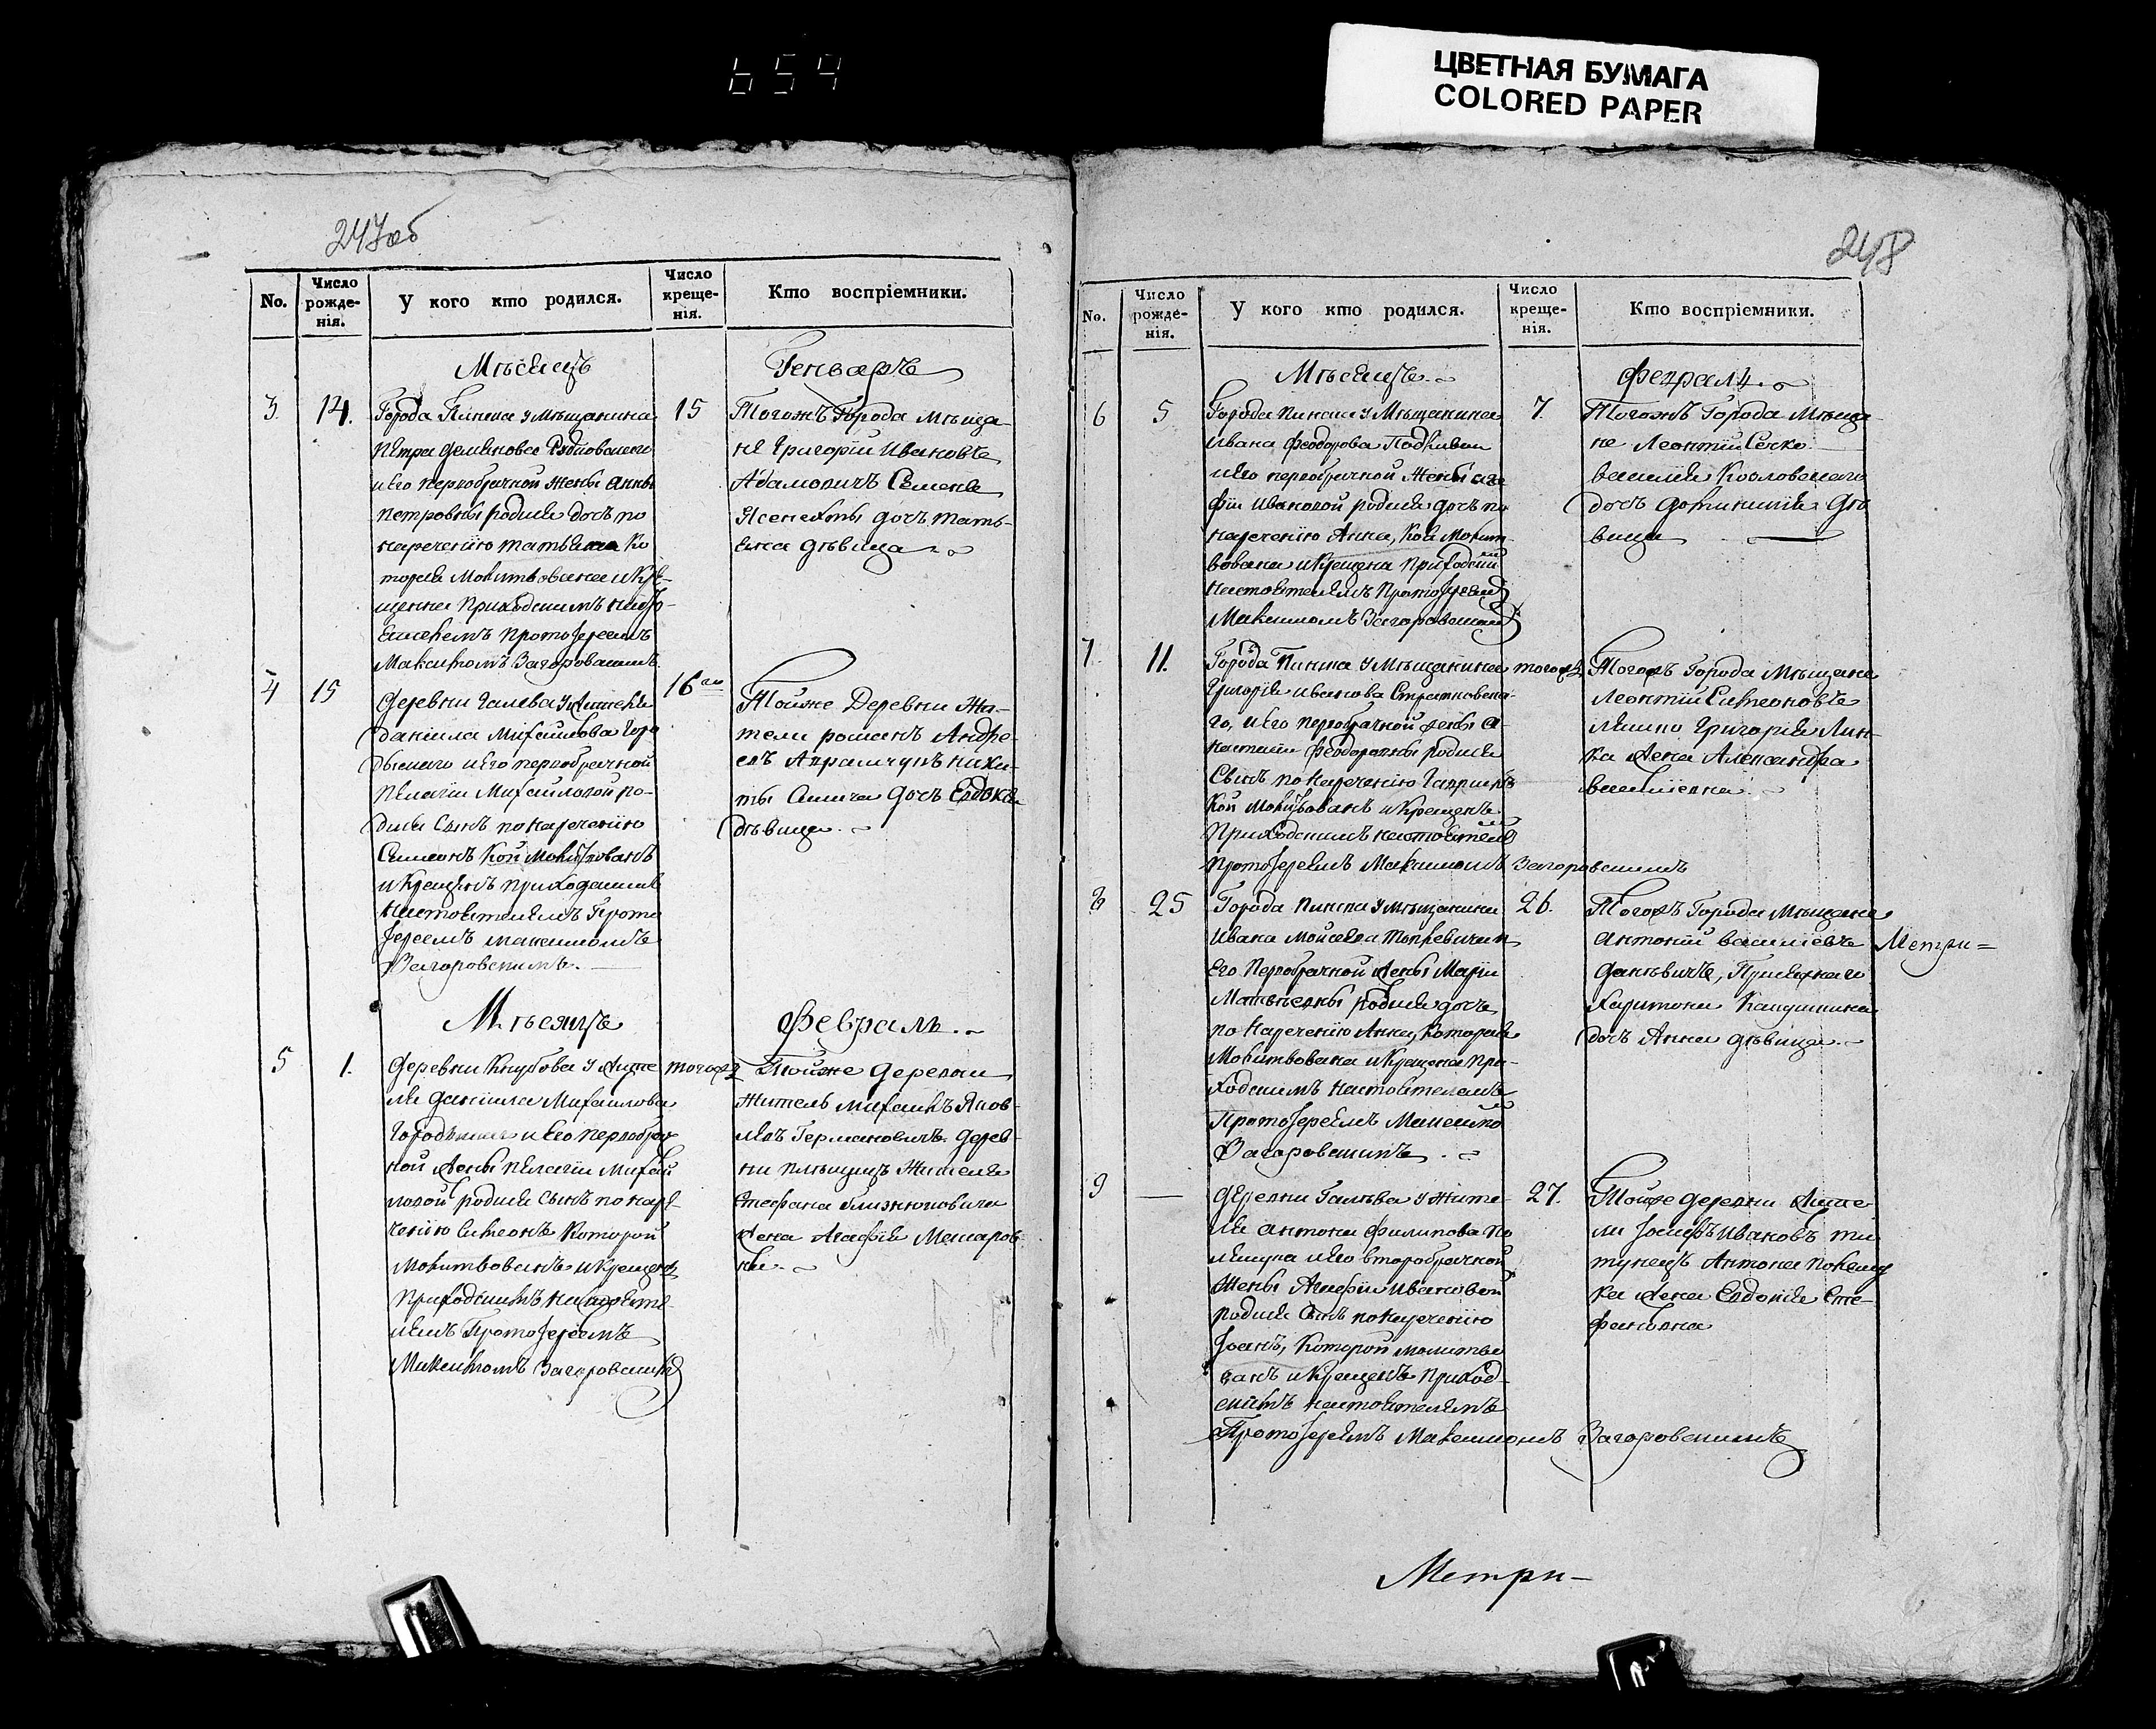 654
ЦВЕТНАЯ БУМАГА
COLORED PAPER
247об
No.
Число рожденія.
У кого кто родился.
Число крещенія.
Кто воспріемники.
Мѣсяцъ
Генварь
3.
14.
Города Пинска у Мѣщанина
Петра
и его первобрачной жены Анны
Петровны родися дочь по
наречению Татьяна ко
торая молитвована и кре-
щенна приходскимъ насто-
ятелемъ Протоіереемъ
Максимомъ Загоровскимъ.
15
Тогожъ Города мѣща-
не Григорій Ивановъ
Адамовичъ Семена
дочь Тать-
яна дѣвица
4
15
Деревни Галева у жителя
Даніила Михайлова Горо
дыского и его первобрачной
Пелагіи Михайловой ро-
дися сынъ по наречению
Симеонъ кой молитвованъ
и крещенъ приходскимъ
настоятелемъ Прото
Іереемъ Максимомъ
Загоровскимъ.
16
Тойже Деревни Жи-
тели Андре-
евъ Ники-
ты дочь Евдокія
дѣвица.
Мѣсяцъ
Февраль.
5
1.
Деревни у жите
ля Даніила Михайлова
и его первобрач
ной жены Пелагіи Михай
ловой родися сынъ по наре-
чению Симеонъ которой
молитвованъ и крещенъ
приходскимъ настояте-
лемъ Протоіереемъ
Максимомъ Загоровскимъ
тогожъ
Тойже деревни
житель Михаилъ Яков-
левъ Германовичъ. Дерев-
ни жителя
Стефана
жена Агафія
248
No.
Число рожденія.
У кого кто родился.
Число крещенія.
Кто воспріемники.
Мѣсяцъ.
Февраль.
6
5
Города Пинска у Мѣщанина
Ивана Феодорова
и его первобрачной жены Ага
фіи Ивановой родися дочь по
наречению Анна, коя молит-
вована и крещена приходскимъ
настоятелемъ Протоіереемъ
Максимомъ Загоровскимъ
7.
Тогожъ Города Мѣща-
не Леонтій Сечко
Василія Козловскаго
дочь дѣ
вица
7.
11.
Города Пинска у Мѣщанина
Григорія Иванова
го, и его первобрачной жены А-
настасіи Феодоровны родися
сынъ по наречению Гавриилъ
кой молитвованъ и крещенъ
приходскимъ настоятелемъ
Протоіереемъ Максимомъ Загоровскимъ
тогожъ
Тогожъ Города Мѣщане
Леонтій Симеоновъ
Григорія
жена Александра
Васильевна.
8
25
Города Пинска у Мѣщанина
Ивана Мойсеева
его первобрачной жены Маріи
Матвѣевны родися дочь
по наречению Анна, которая
молитвована и крещена при-
ходскимъ настоятелемъ
Протоіереемъ Максимомъ
Загоровскимъ.
26.
Тогожъ Города Мѣщане
Антоній Васильевъ
Харитона
дочь Анна дѣвица.
Метри=
9
—
Деревни Галева у жите-
ля Антона Филипова По
и его второбрачной
жены Агафіи Ивановой
родися сынъ по наречению
Іоанъ, которой молитво
ванъ и крещенъ приход-
скимъ настоятелемъ
Протоіереемъ Максимомъ Загоровскимъ
27.
Тойже деревни жите
ли Іосифъ Ивановъ
Антона
жена Евдокія Сте-
фановна
Метри-